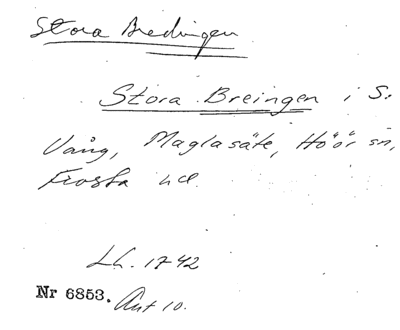 Stora Bredingen
Stora Breingen i S.
Vång, Maglasäte, Höör sn,
Frosta hd.
Lh. 1742
Nr 6853. Ant 10.